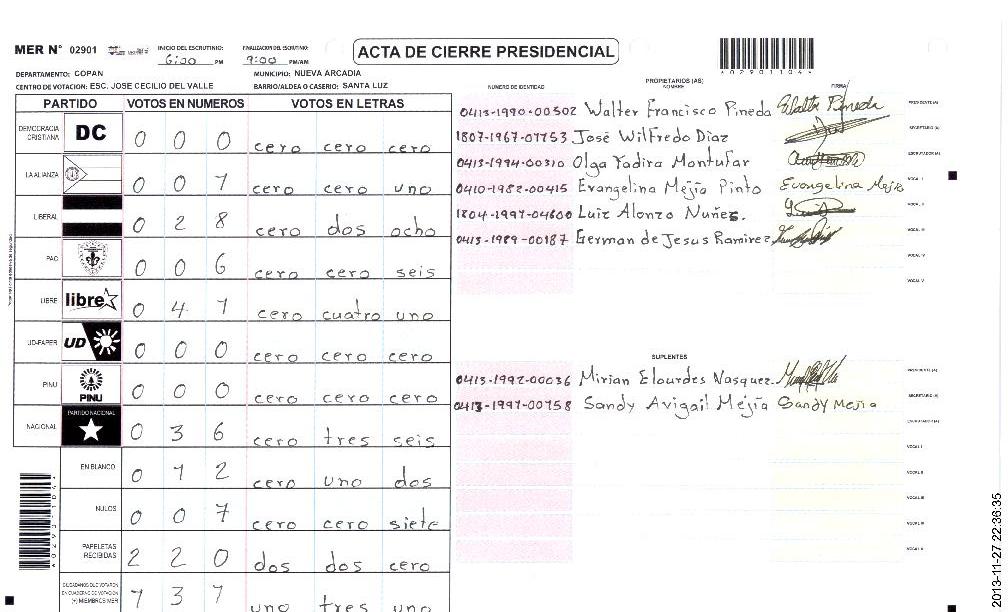 MER N° 02901 INICIO DEL ESCRUTINIO: 6:00 PM FINALIZACION DEL ESCRUTINIO: 9:00 PM/AM
ACTA DE CIERRE PRESIDENCIAL
A02901104
DEPARTAMENTO: COPAN MUNICIPIO: NUEVA ARCADIA
CENTRO DE VOTACION: ESC. JOSE CECILIO DEL VALLE BARRIO/ALDEA O CASERIO: SANTA LUZ
PARTIDO VOTOS EN NUMEROS VOTOS EN LETRAS
DEMOCRACIA CRISTIANA DC 0 0 0 cero cero cero
LA ALIANZA 0 0 1 cero cero uno
LIBERAL 0 2 8 cero dos ocho
PAC 0 0 6 cero cero seis
LIBRE libre 0 4 1 cero cuatro uno
UD-FAPER UD 0 0 0 cero cero cero
PINU PINU 0 0 0 cero cero cero
NACIONAL PARTIDO NACIONAL 0 3 6 cero tres seis
EN BLANCO 0 1 2 cero uno dos
NULOS 0 0 7 cero cero siete
PAPELETAS RECIBIDAS 2 2 0 dos dos cero
CIUDADANOS QUE VOTARON EN CUADERNO DE VOTACION (+) MIEMBROS MER 1 3 1 uno tres uno
NÚMERO DE IDENTIDAD PROPIETARIOS (AS) NOMBRE FIRMA
0413-1990-00502 Walter Francisco Pineda Walter Pineda PRESIDENTE(A)
1807-1967-01753 José Wilfredo Díaz SECRETARIO (A)
0413-1994-00310 Olga Yadira Montufar ESCRUTADOR (A)
0410-1982-00415 Evangelina Mejía Pinto Evangelina Mejía VOCAL I
1804-1997-04600 Luiz Alonzo Nuñes. VOCAL II
0413-1989-00187 German de Jesus Ramirez VOCAL III
VOCAL IV
VOCAL V
SUPLENTES
0413-1992-00036 Mirian Elourdes Vasquez PRESIDENTE (A)
0413-1991-00158 Sandy Avigail Mejía Sandy Mejia SECRETARIO (A)
ESCRUTADOR (A)
VOCAL I
VOCAL II
VOCAL III
VOCAL IV
VOCAL V
2013-11-27 22:36:35